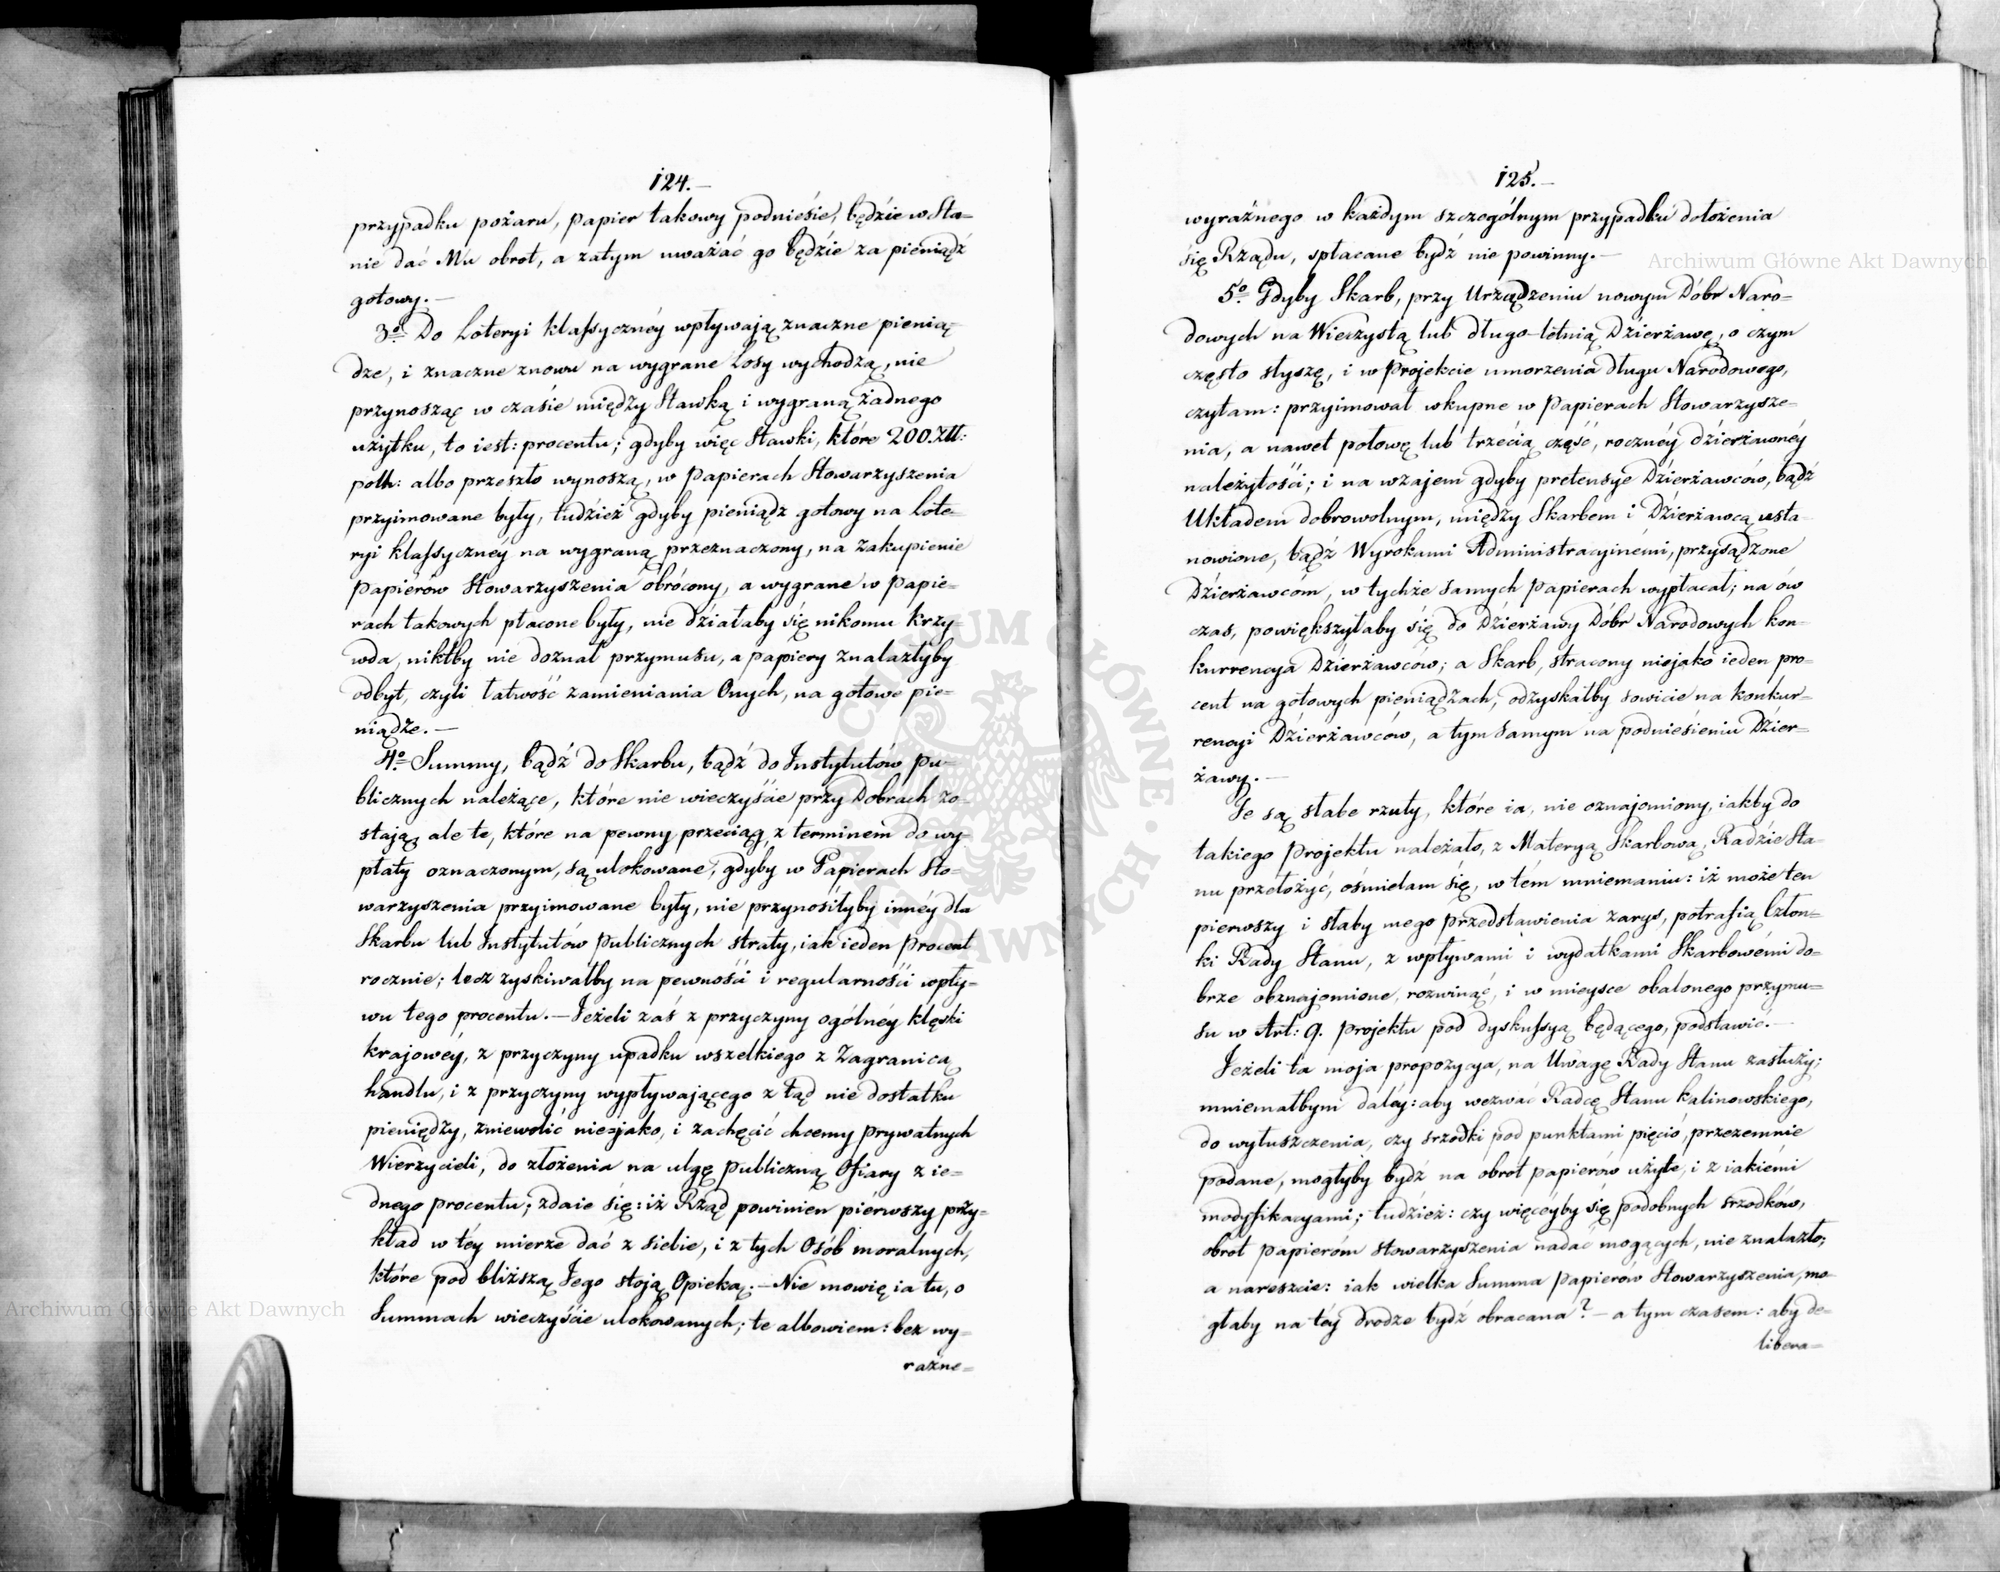 124.—
przypadku pożaru, papier takowy podniesie, będzie w Sta=
nie dać Mu obrot, a zatym uważać go będzie za pieniądz
gotowy.—
3o. Do Loteryi klassycznéy wpływają znaczne pienią=
dze, i znaczne znowu na wygrane Losy wychodzą, nie
przynosząc w czasie między Stawką i wygraną żadnego
użytku, to iest: procentu; gdyby więc Stawki, które 200. Złt:
polk: albo przeszło wynoszą, w papierach Stowarzyszenia
przyimowane były, tudzież gdyby pieniądz gotowy na Lote=
ryi klassycznéy na wygraną przeznaczony, na zakupienie
papierów Stowarzyszenia obrócony, a wygrane w papie=
rach takowych płacone były, nie działaby się nikomu krzy=
wda, niktby nie doznał przymusu, a papiery znalazłyby
odbyt, czyli łatwość zamieniania Onych, na gotowe pie=
niądze.—
4o. Summy, bądź do Skarbu, bądź do Instytutów pu=
blicznych należące, które nie wieczyście przy Dobrach zo=
stają, ale te, które na pewny przeciąg, z terminem do wy=
płaty oznaczonym, są ulokowane, gdyby w Papierach Sto=
warzyszenia przyimowane były, nie przynosiłyby innéy dla
Skarbu lub Instytutów publicznych straty, iak ieden procent
rocznie; lecz zyskiwałby na pewności i regularności wpły=
wu tego procentu.— Jeżeli zaś z przyczyny ogólnéy klęski
krajowéy, z przyczyny upadku wszelkiego z Zagranicą
handlu, i z przyczyny wypływającego z tąd nie dostatku
pieniędzy, zniewolić nie=jako, i zachęcić chcemy prywatnych
Wierzycieli, do złożenia na ulgę publiczną Ofiary z ie=
dnego procentu; zdaie się: iż Rząd powinien piérwszy przy=
kład w téy mierze dać z siebie, i z tych Osób moralnych,
które pod bliższą Jego stoją Opieką.— Nie mowię ia tu, o
Summach wieczyście ulokowanych; te albowiem: bez wy=
raźne=
125.—
wyraźnego w każdym szczególnym przypadku dołożenia
się Rządu, spłacane bydź nie powinny.—
5o. Gdyby Skarb, przy Urządzeniu nowym Dóbr Naro=
dowych na Wieczystą lub długo-letnią Dzierżawę, o czym
często słyszę, i w projekcie umorzenia długu Narodowego,
czytam: przyimował wkupne w papierach Stowarzysze=
nia, a nawet połowę lub trzecią część, rocznéy dzierżawnéy
należytości; i na wzajem gdyby pretensye Dzierżawców, bądź
Układem dobrowolnym, między Skarbem i Dzierżawcą usta=
nowione, bądź Wyrokami Administracyinémi, przysądzone
Dzierżawcóm, w tychże samych papierach wypłacał; na ów
czas, powiększyłaby się do Dzierżawy Dóbr Narodowych kon=
kurrencya Dzierżawców; a Skarb, stracony niejako ieden pro=
cent na gotowych pieniądzach, odzyskałby sowicie na konkur=
rencyi Dzierżawców, a tym samym na podniesieniu Dzier=
żawy.—
Te są słabe rzuty, które ia, nie oznajomiony, iakby do
takiego projektu należało, z Materyą Skarbową, Radzie Sta=
nu przełożyć, ośmielam się, w tém mniemaniu: iż może ten
pierwszy i słaby mego przedstawienia zarys, potrafią Człon=
ki Rady Stanu, z wpływami i wydatkami Skarbowémi do=
brze obznajomione, rozwinąć, i w mieysce obalonego przymu=
su w Art: 9. projektu pod dyskussyą będącego, podstawić.—
Jeżeli ta moja propozycya, na Uwagę Rady Stanu zasłuży;
mniemałbym daléy: aby wezwać Radcę Stanu Kalinowskiego,
do wyłuszczenia, czy srzodki pod punktami pięciό, przezemnie
podane, mogłyby bydź na obrot papierów użyte, i z iakiémi
modyfikacyami; tudzież: czy więcéyby się podobnych srzodków,
obrot papieróm Stowarzyszenia nadać mogących, nie znalazło;
a nareszcie: iak wielka Summa papierów Stowarzyszenia, mo=
głaby na téy drodze bydź obracana?— a tym czasem: aby de=
libera=
Archiwum Główne Akt Dawnych
Archiwum Główne Akt Dawnych
ARCHIWUM GŁÓWNE AKT DAWNYCH